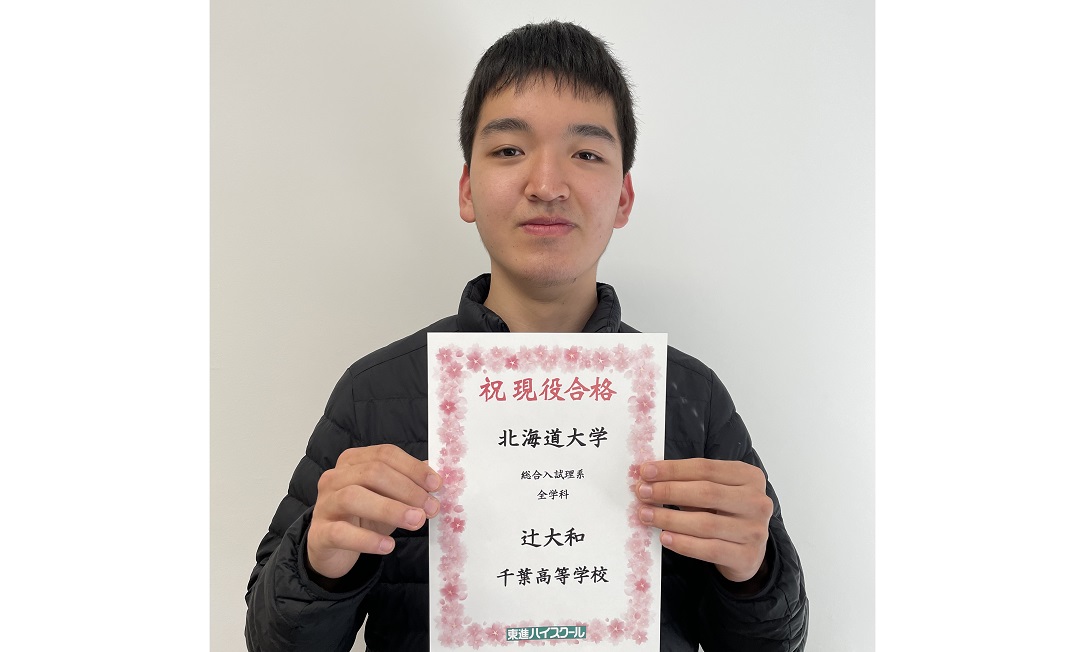 祝 現役合格
北海道大学
総合入試理系
全学科
辻大和
千葉高等学校
東進ハイスクール